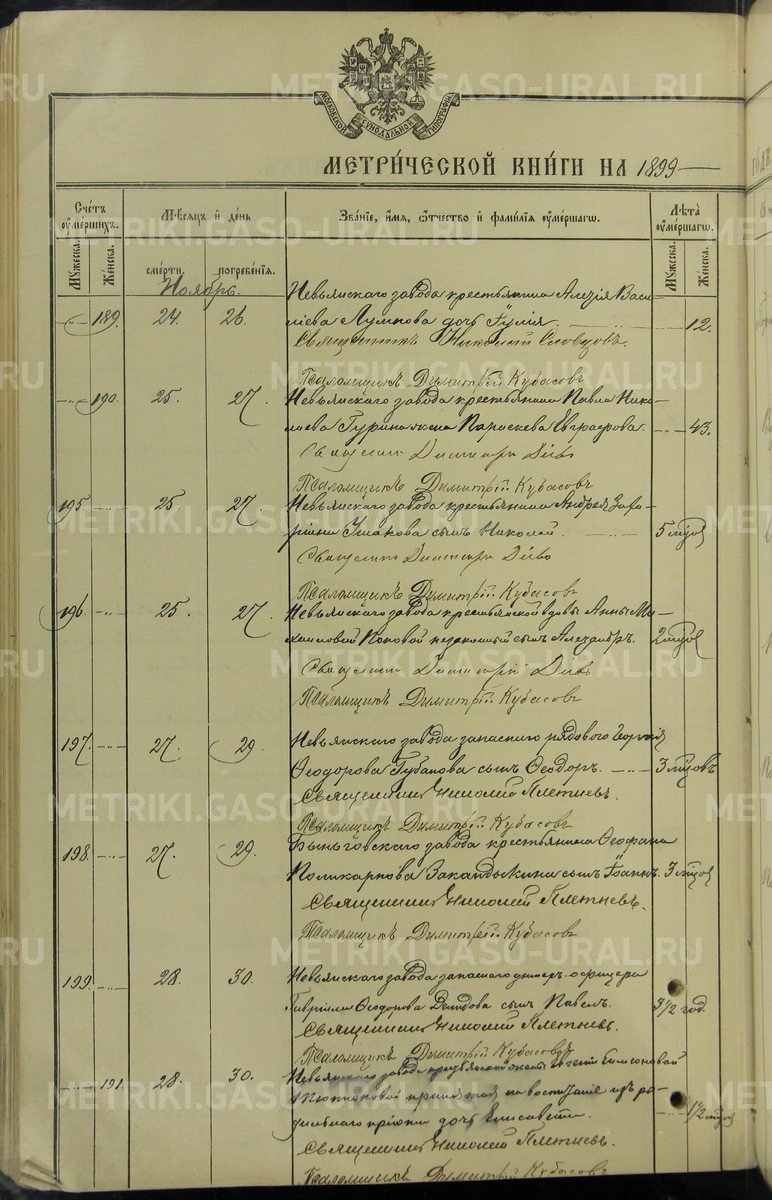 МОСКОВСКОЙ СѴНОДАЛЬНОЙ ТИПОГРАФІИ
МЕТРИ́ЧЕСКОЙ КНИ́ГИ НА 1899
Сче́тъ ᲂу҆ме́ршихъ.
Мѣ́сяцъ и҆ де́нь
Зва́нїе, и҆́мя, ѻ҆́тчество и҆ фами́лїя ᲂу҆ме́ршагѡ.
Лѣ́та ᲂу҆ме́ршагѡ.
Мꙋ́жеска. Же́нска. сме́рти. погребе́нїя. Мꙋ́жеска. Же́нска.
Ноябрь.
Невьянскаго завода крестьянина Алексія Васи-
189. 24. 26. ліева Лумпова дочь Іулія. 12.
Священникъ Николай Словцовъ.
Псаломщикъ Димитрій Кубасовъ
190. 25. 27. Невьянскаго завода крестьянина Павла Нико-
лаева Гурина жена Параскева Евграфова. 43.
Священникъ Димитрій
Псаломщикъ Димитрій Кубасовъ
195. 25. 27. Невьянскаго завода крестьянина Андрея Заха-
ріина Ушакова сынъ Николай. 5 мѣся
Священникъ Димитрій
Псаломщикъ Димитрій Кубасовъ
196. 25. 27. Невьянскаго завода крестьянской вдовы Анны Ми-
хаиловой Поповой незаконный сынъ Александръ. 2 мѣся
Священникъ Димитрій
Псаломщикъ Димитрій Кубасовъ
197. 27. 29. Невьянскаго завода запаснаго рядового Георгія
Ѳеодорова Губанова сынъ Ѳеодоръ. 3 мѣсяцевъ
Священникъ Николай Плетневъ.
Псаломщикъ Димитрій Кубасовъ
198. 27. 29. Быньговскаго завода крестьянина Ѳеофана
Поликарпова Закандыкина сынъ Іоаннъ. 3 мѣся
Священникъ Николай Плетневъ.
Псаломщикъ Димитрій Кубасовъ
199. 28. 30. Невьянскаго завода запаснаго унтеръ-офицера
Гавріила Ѳеодорова Демидова сынъ Павелъ. 3 1/2 год.
Священникъ Николай Плетневъ.
Псаломщикъ Димитрій Кубасовъ
191. 28. 30. Невьянскаго завода Евгеніи
принятая на воспитаніе изъ ро-
дильнаго пріюта дочь Елисавета. 1/2 мѣся
Священникъ Николай Плетневъ.
Псаломщикъ Димитрій Кубасовъ
METRIKI.GASO-URAL.RU